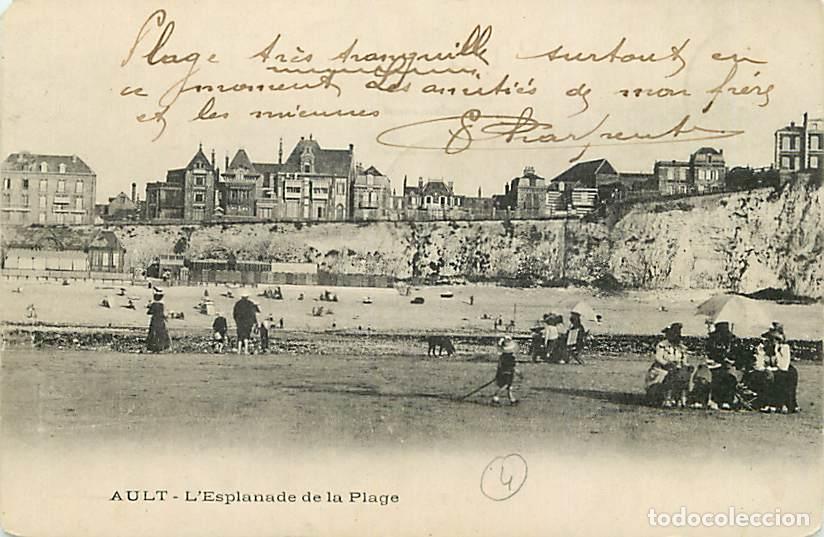 Plage très tranquille surtout en
ce moment Les amitiés de mon frère
et les miennes
AULT - L'Esplanade de la Plage
4
todocoleccion